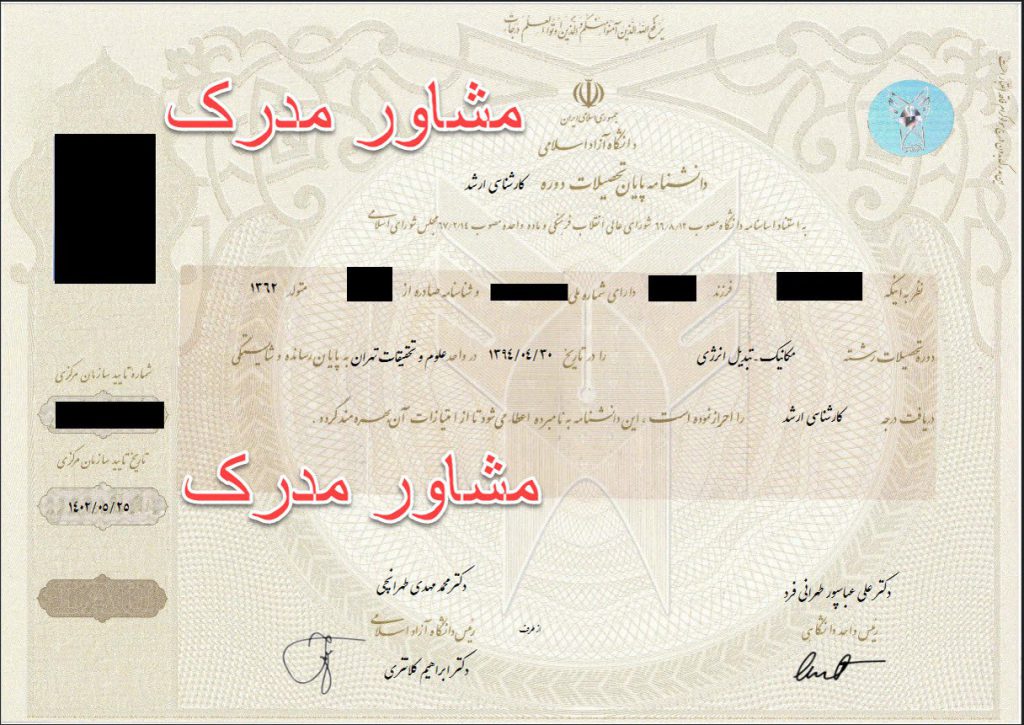 یرفع الله الذین آمنوا منکم و الذین اوتوا العلم درجات
جمهوری اسلامی ایران
دانشگاه آزاد اسلامی
مشاور مدرک
دانشنامه پایان تحصیلات دوره کارشناسی ارشد
به استناد اساسنامه دانشگاه مصوب ۶۶/۸/۱۲ شورای عالی انقلاب فرهنگی و ماده واحده مصوب ۶۷/۲/۱۴ مجلس شورای اسلامی
نظر به اینکه فرزند دارای شماره ملی و شناسنامه صادره از متولد ۱۳۶۲
دوره تحصیلات رشته مکانیک - تبدیل انرژی را در تاریخ ۱۳۹۴/۰۴/۳۰ در واحد علوم و تحقیقات تهران به پایان رسانده و شایستگی
دریافت درجه کارشناسی ارشد را احراز نموده است ، این دانشنامه به نامبرده اعطا می شود تا از امتیازات آن بهره مند گردد .
شماره تایید سازمان مرکزی
تاریخ تایید سازمان مرکزی
۱۴۰۲/۰۵/۲۵
مشاور مدرک
دکتر علی عباسپور طهرانی فرد
رئیس واحد دانشگاهی
دکتر محمد مهدی طهرانچی
رئیس دانشگاه آزاد اسلامی
از طرف
دکتر ابراهیم کلانتری